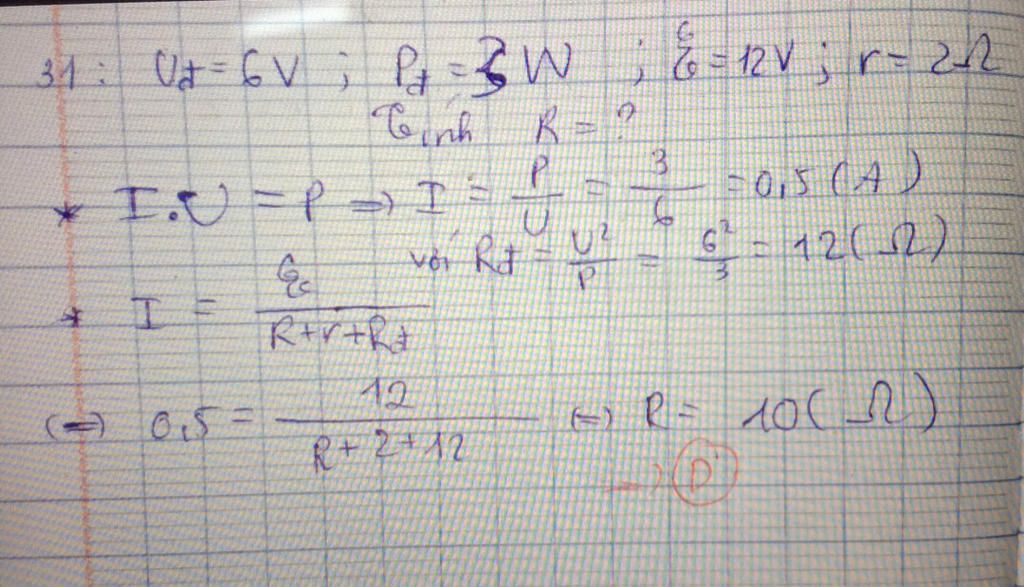 31: Uđ = 6V ; Pđ = 3W ; ξ = 12V ; r = 2Ω
Tính R = ?
* I.U = P => I = P/U = 3/6 = 0,5 (A)
với Rđ = U²/P = 6²/3 = 12 (Ω)
* I = ξ/(R+r+Rđ)
(=) 0,5 = 12/(R+2+12) (=) R = 10 (Ω)
→ D